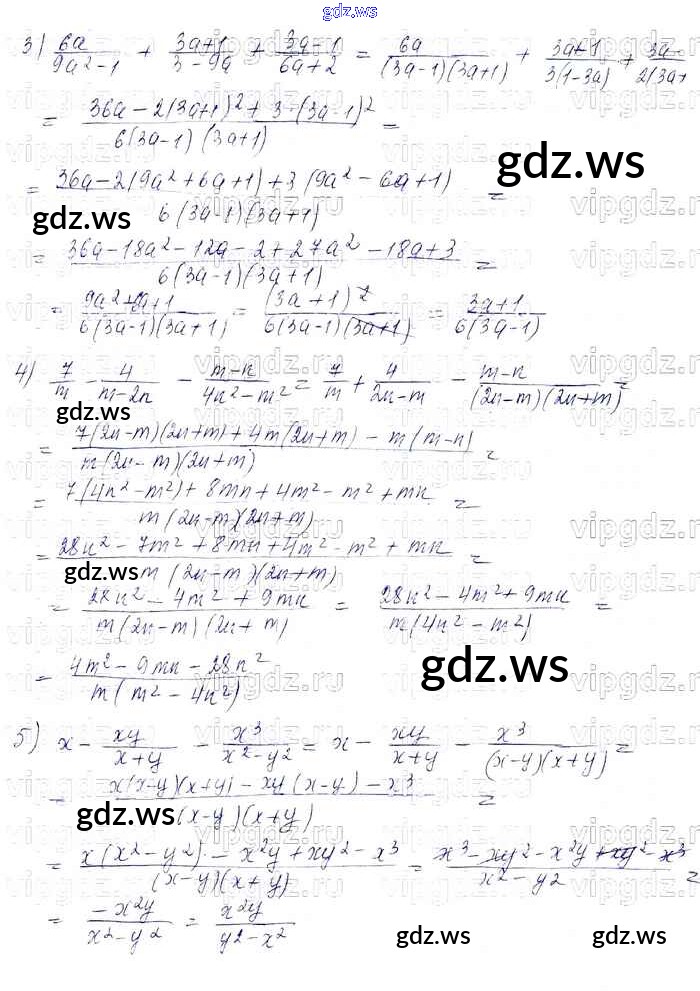 gdz.ws
3) 6a/(9a²-1) + (3a+1)/(3-9a) + (3a-1)/(6a+2) = 6a/((3a-1)(3a+1)) + (3a+1)/(3(1-3a)) + (3a-/(2(3a+
= (36a-2(3a+1)²+3·(3a-1)²)/(6(3a-1)(3a+1)) =
gdz.ws
= (36a-2(9a²+6a+1)+3(9a²-6a+1))/(6(3a-1)(3a+1)) =
gdz.ws
= (36a-18a²-12a-2+27a²-18a+3)/(6(3a-1)(3a+1)) =
= (9a²+6a+1)/(6(3a-1)(3a+1)) = (3a+1)²/(6(3a-1)(3a+1)) = (3a+1)/(6(3a-1))
4) 7/m - 4/(m-2n) - (m-n)/(4n²-m²) = 7/m + 4/(2n-m) - (m-n)/((2n-m)(2n+m)) =
gdz.ws
= (7(2n-m)(2n+m)+4m(2n+m)-m(m-n))/(m(2n-m)(2n+m)) =
= (7(4n²-m²)+8mn+4m²-m²+mn)/(m(2n-m)(2n+m)) =
= (28n²-7m²+8mn+4m²-m²+mn)/(m(2n-m)(2n+m)) =
gdz.ws
= (28n²-4m²+9mn)/(m(2n-m)(2n+m)) = (28n²-4m²+9mn)/(m(4n²-m²)) =
= (4m²-9mn-28n²)/(m(m²-4n²))
gdz.ws
5) x - xy/(x+y) - x³/(x²-y²) = x - xy/(x+y) - x³/((x-y)(x+y)) =
= (x(x-y)(x+y)-xy(x-y)-x³)/((x-y)(x+y)) =
gdz.ws
= (x(x²-y²)-x²y+xy²-x³)/((x-y)(x+y)) = (x³-xy²-x²y+xy²-x³)/(x²-y²) =
= -x²y/(x²-y²) = x²y/(y²-x²)
gdz.ws gdz.ws